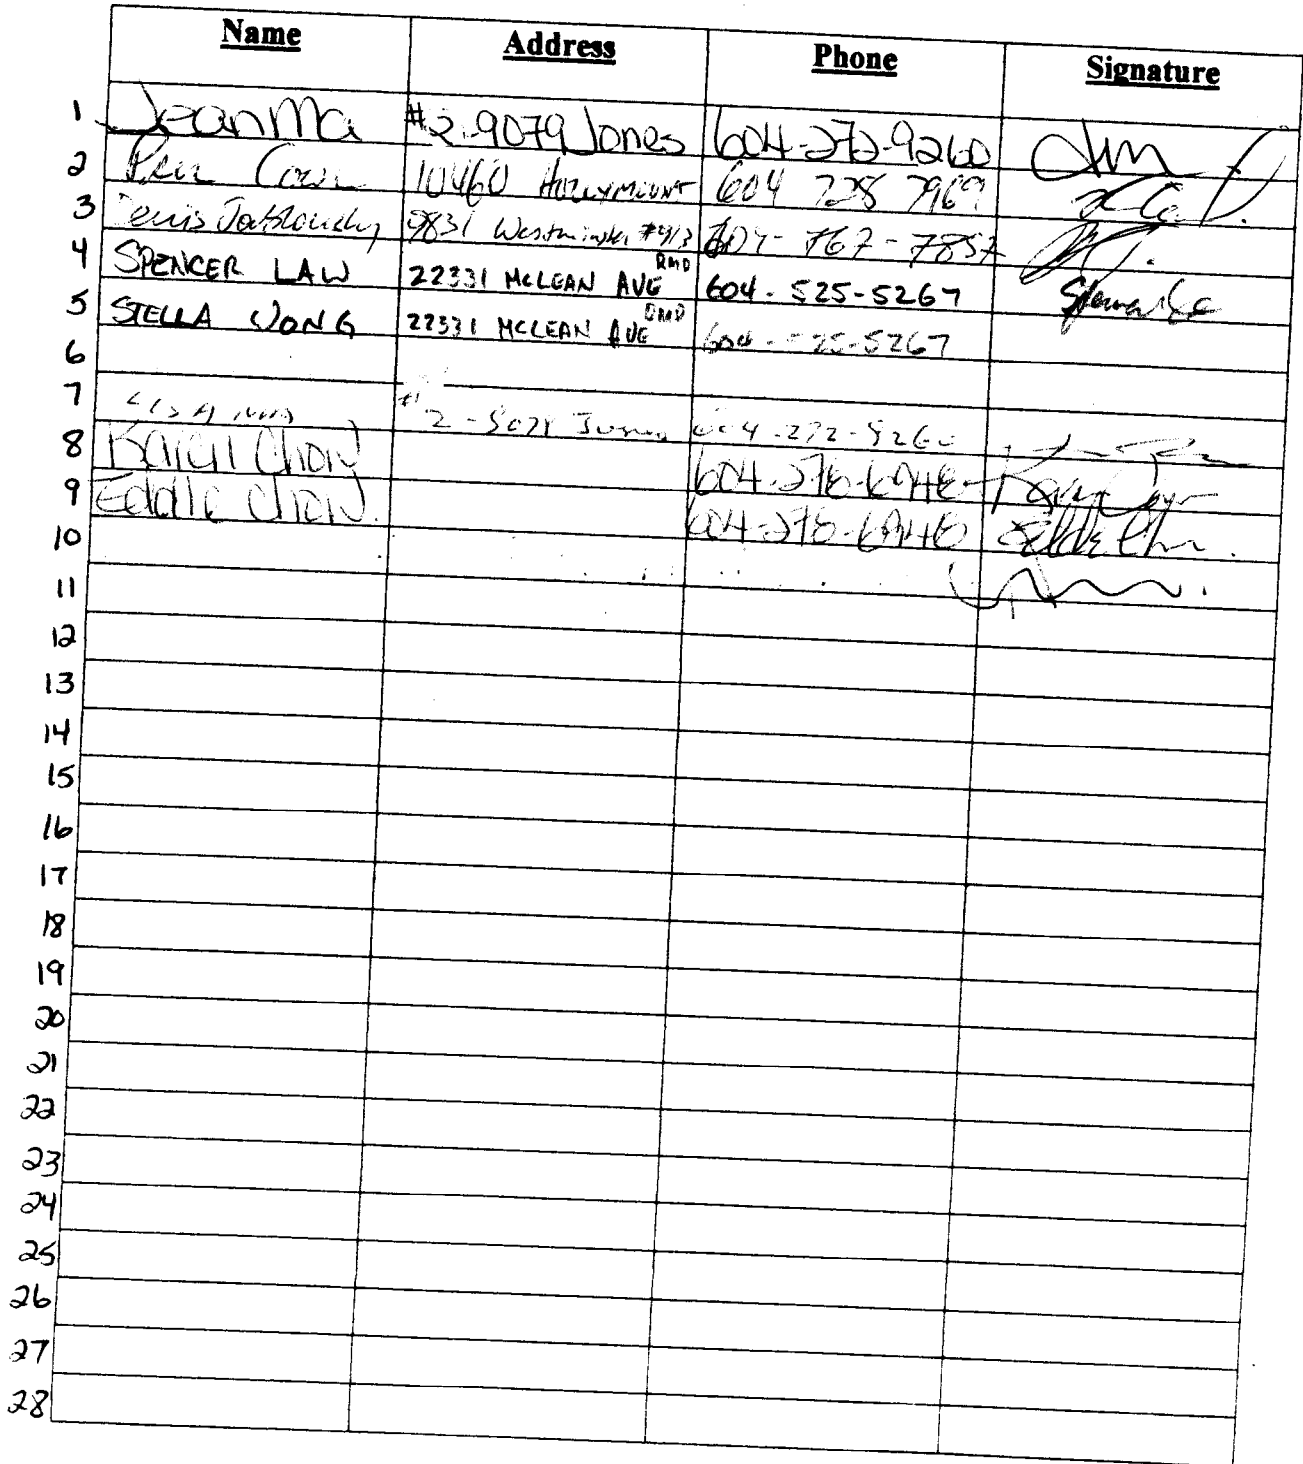 Name Address Phone Signature
1 Jean Ma #2-9079 Jones 604-272-9260
2 10460 HOLLYMOUNT 604 728 7969
3 Denis 9831 Westminster #413 604-767-7857
4 SPENCER LAW 22331 MCLEAN AVE RMD 604-525-5267
5 STELLA WONG 22331 MCLEAN AVE RMD 604-525-5267
6
7 LISA MA #2 - 604-272-9260
8 Karen Chow 604-278-6948
9 Eddie Chow 604-278-6948
10
11
12
13
14
15
16
17
18
19
20
21
22
23
24
25
26
27
28